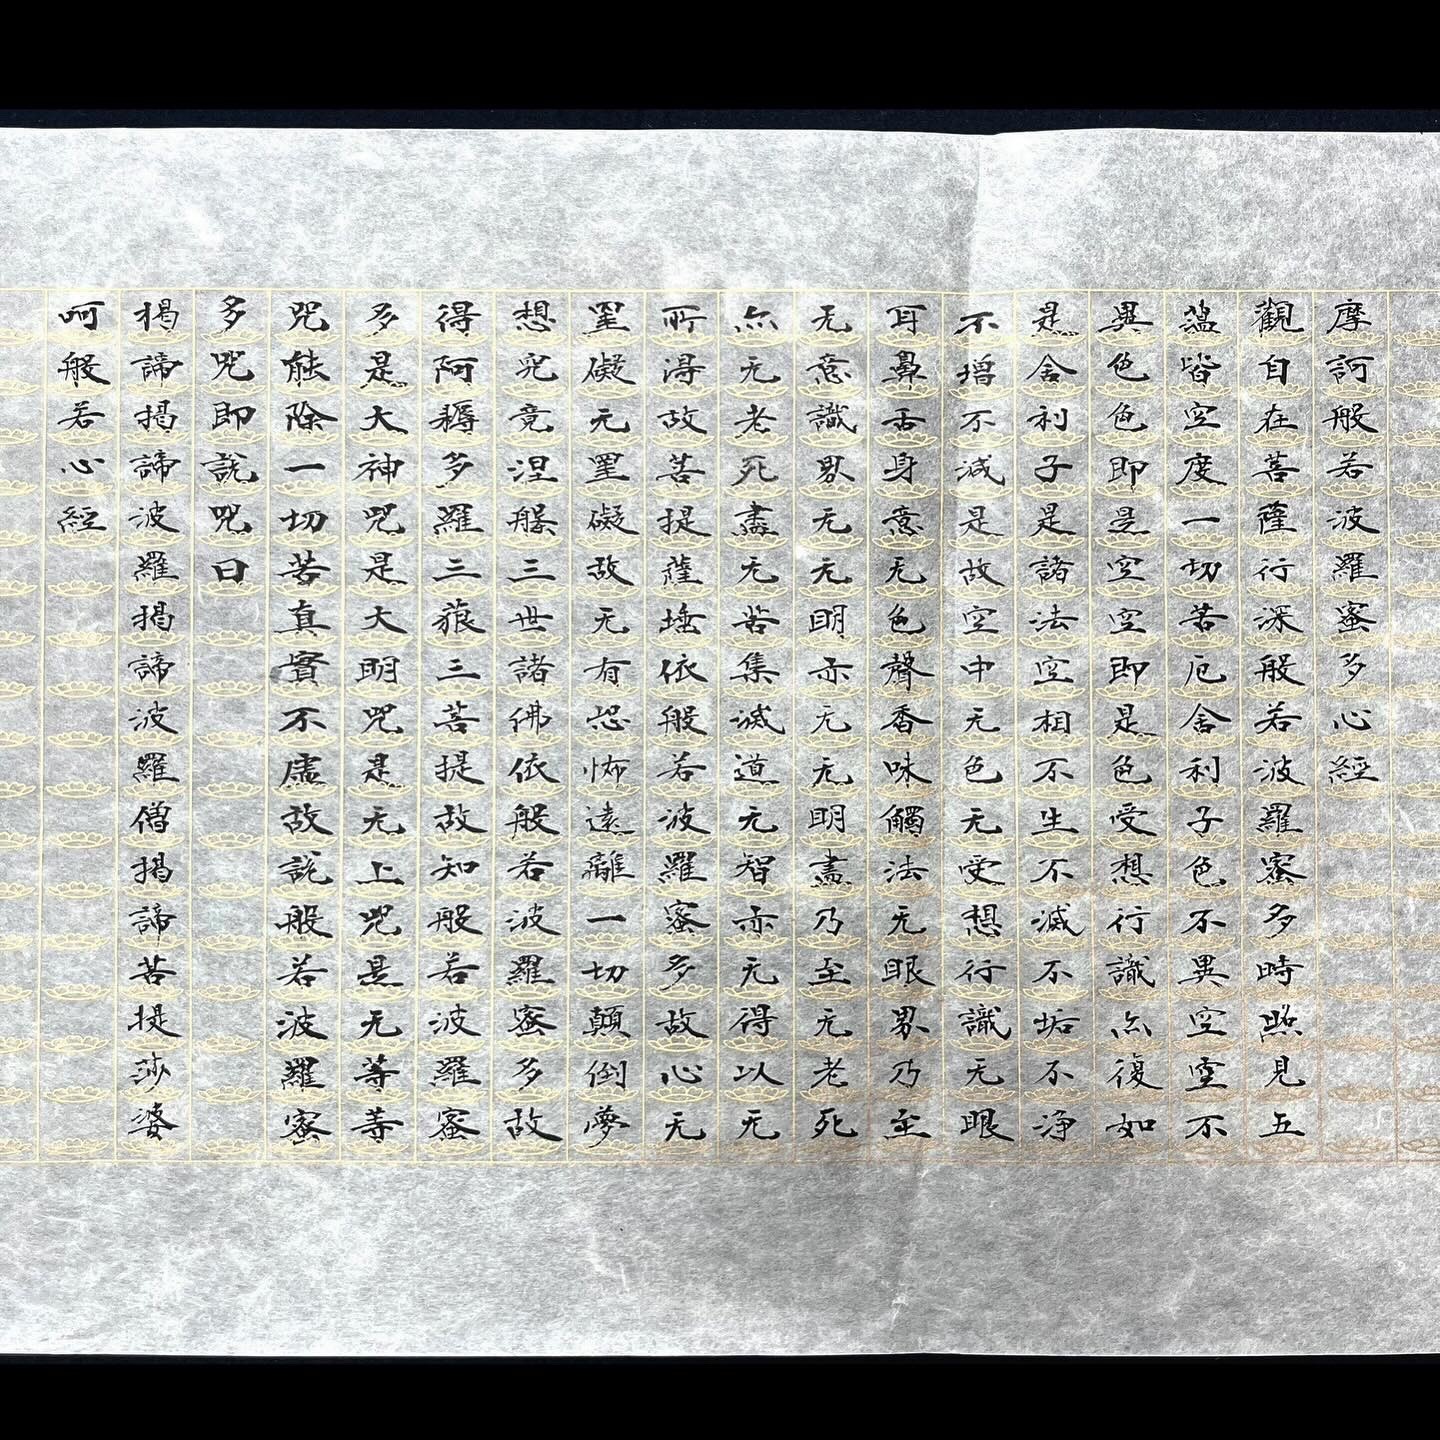 摩訶般若波羅蜜多心經
觀自在菩薩行深般若波羅蜜多時照見五
蕰皆空度一切苦厄舍利子色不異空空不
異色色即是空空即是色受想行識亦復如
是舍利子是諸法空相不生不滅不垢不净
不增不減是故空中无色无受想行識无眼
耳鼻舌身意无色聲香味觸法无眼界乃至
无意識界无无明亦无无明盡乃至无老死
亦无老死盡无苦集滅道无智亦无得以无
所得故菩提薩埵依般若波羅蜜多故心无
罣礙无罣礙故无有恐怖遠離一切顛倒夢
想究竟涅般三世諸佛依般若波羅蜜多故
得阿耨多羅三藐三菩提故知般若波羅蜜
多是大神咒是大明咒是无上咒是无等等
咒能除一切苦真實不虛故說般若波羅蜜
多咒即說咒曰
揭諦揭諦波羅揭諦波羅僧揭諦菩提莎婆
呵般若心經